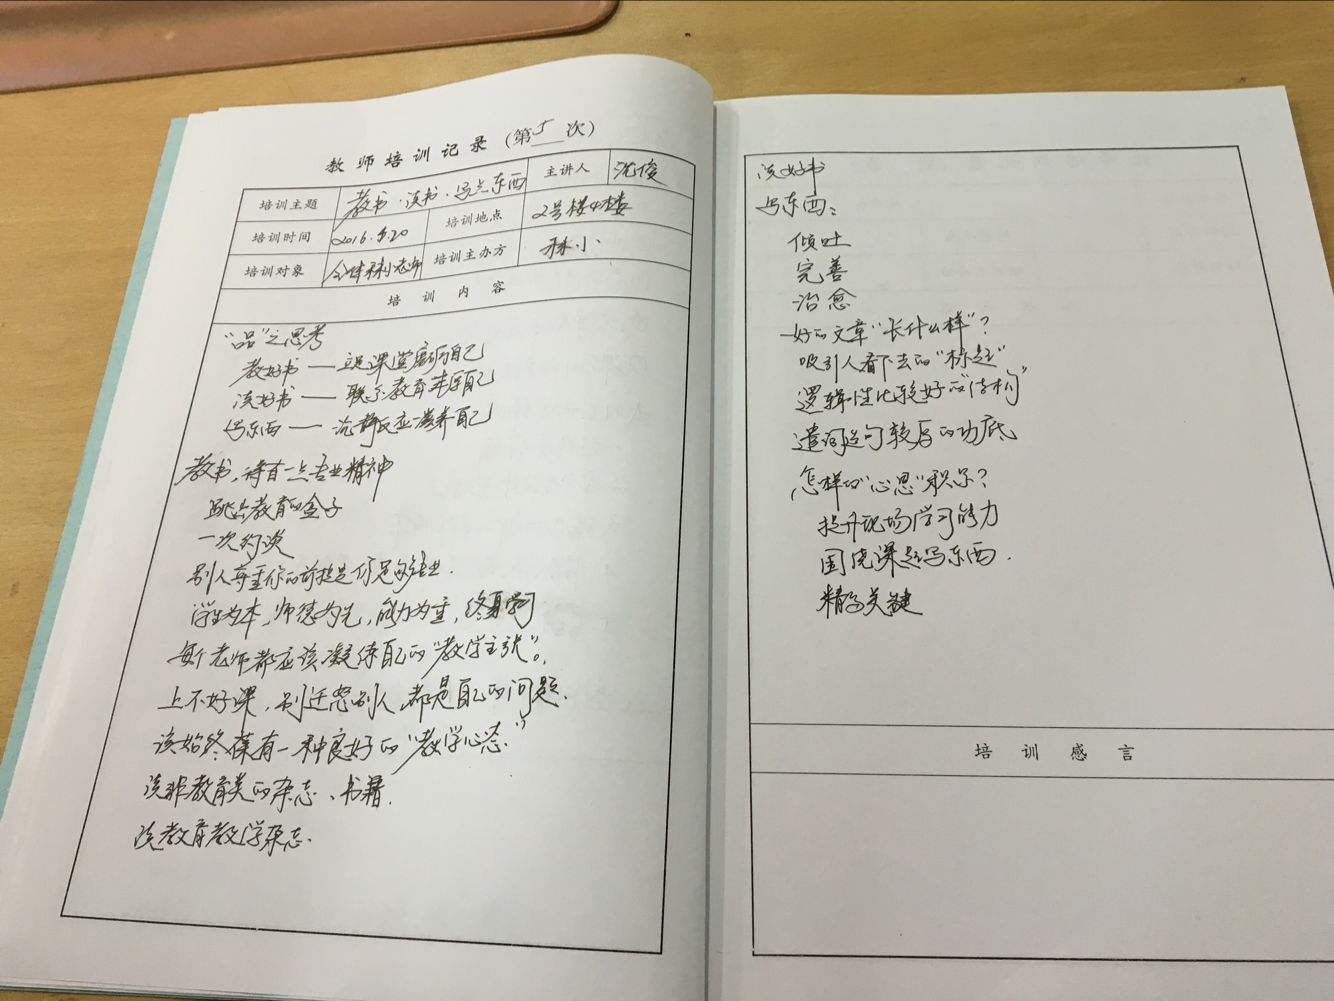 教师培训记录（第5次）
培训主题 教书·读书·写点东西 主讲人 沈俊
培训时间 2016.9.20 培训地点 2号楼4楼
培训对象 全体林小老师 培训主办方 林小
培训内容
“品”之思考
教好书——立足课堂磨砺自己
读好书——联系教育丰厚自己
写东西——沉静反应滋养自己
教书，得有一点专业精神
跳出教育的盒子
一次约谈
别人尊重你的前提是你足够专业.
学生为本，师德为先，能力为重，终身学习
每个老师都应该凝练自己的“教学主张”。
上不好课，别迁怒别人，都是自己的问题.
该始终葆有一种良好的“教学心态.”
读非教育类的杂志、书籍.
读教育教学杂志.
读好书
写东西：
倾吐
完善
治愈
好的文章“长什么样”？
吸引人看下去的“标题”
逻辑性比较好的“结构”
遣词造句较厚的功底
怎样的“心思”积累？
提升现场学习能力
围绕课题写东西.
精多关键
培训感言